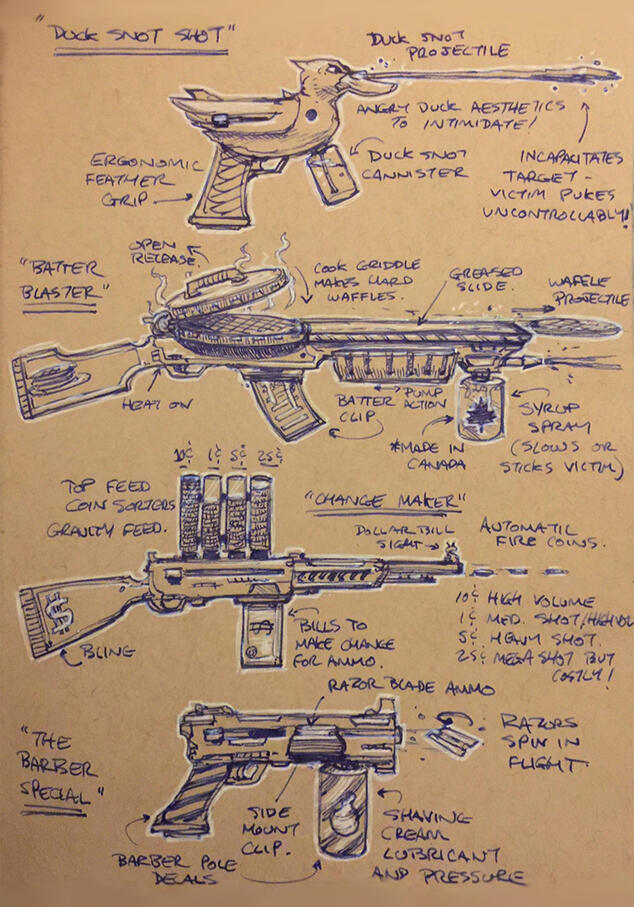 "DUCK SNOT SHOT"
DUCK SNOT
PROJECTILE
ANGRY DUCK AESTHETICS
TO INTIMIDATE!
ERGONOMIC
FEATHER
GRIP
DUCK SNOT
CANNISTER
INCAPACITATES
TARGET -
VICTIM PUKES
UNCONTROLLABLY!
"BATTER
BLASTER"
OPEN
RELEASE
COOK GRIDDLE
MAKES HARD
WAFFLES.
GREASED
SLIDE.
WAFFLE
PROJECTILE
HEAT ON
BATTER
CLIP
PUMP
ACTION
*MADE IN
CANADA
SYRUP
SPRAY
(SLOWS OR
STICKS VICTIM)
10¢ 1¢ 5¢ 25¢
TOP FEED
COIN SORTERS
GRAVITY FEED.
"CHANGE MAKER"
DOLLAR BILL
SIGHT
AUTOMATIC
FIRE COINS.
$
BLING
$
BILLS TO
MAKE CHANGE
FOR AMMO.
10¢ HIGH VOLUME
1¢ MED. SHOT/HIGH VOL
5¢ HEAVY SHOT.
25¢ MEGA SHOT BUT
COSTLY!
"THE
BARBER
SPECIAL"
RAZOR BLADE AMMO
RAZORS
SPIN IN
FLIGHT
SIDE
MOUNT
CLIP.
BARBER POLE
DECALS
SHAVING
CREAM
LUBRICANT
AND PRESSURE